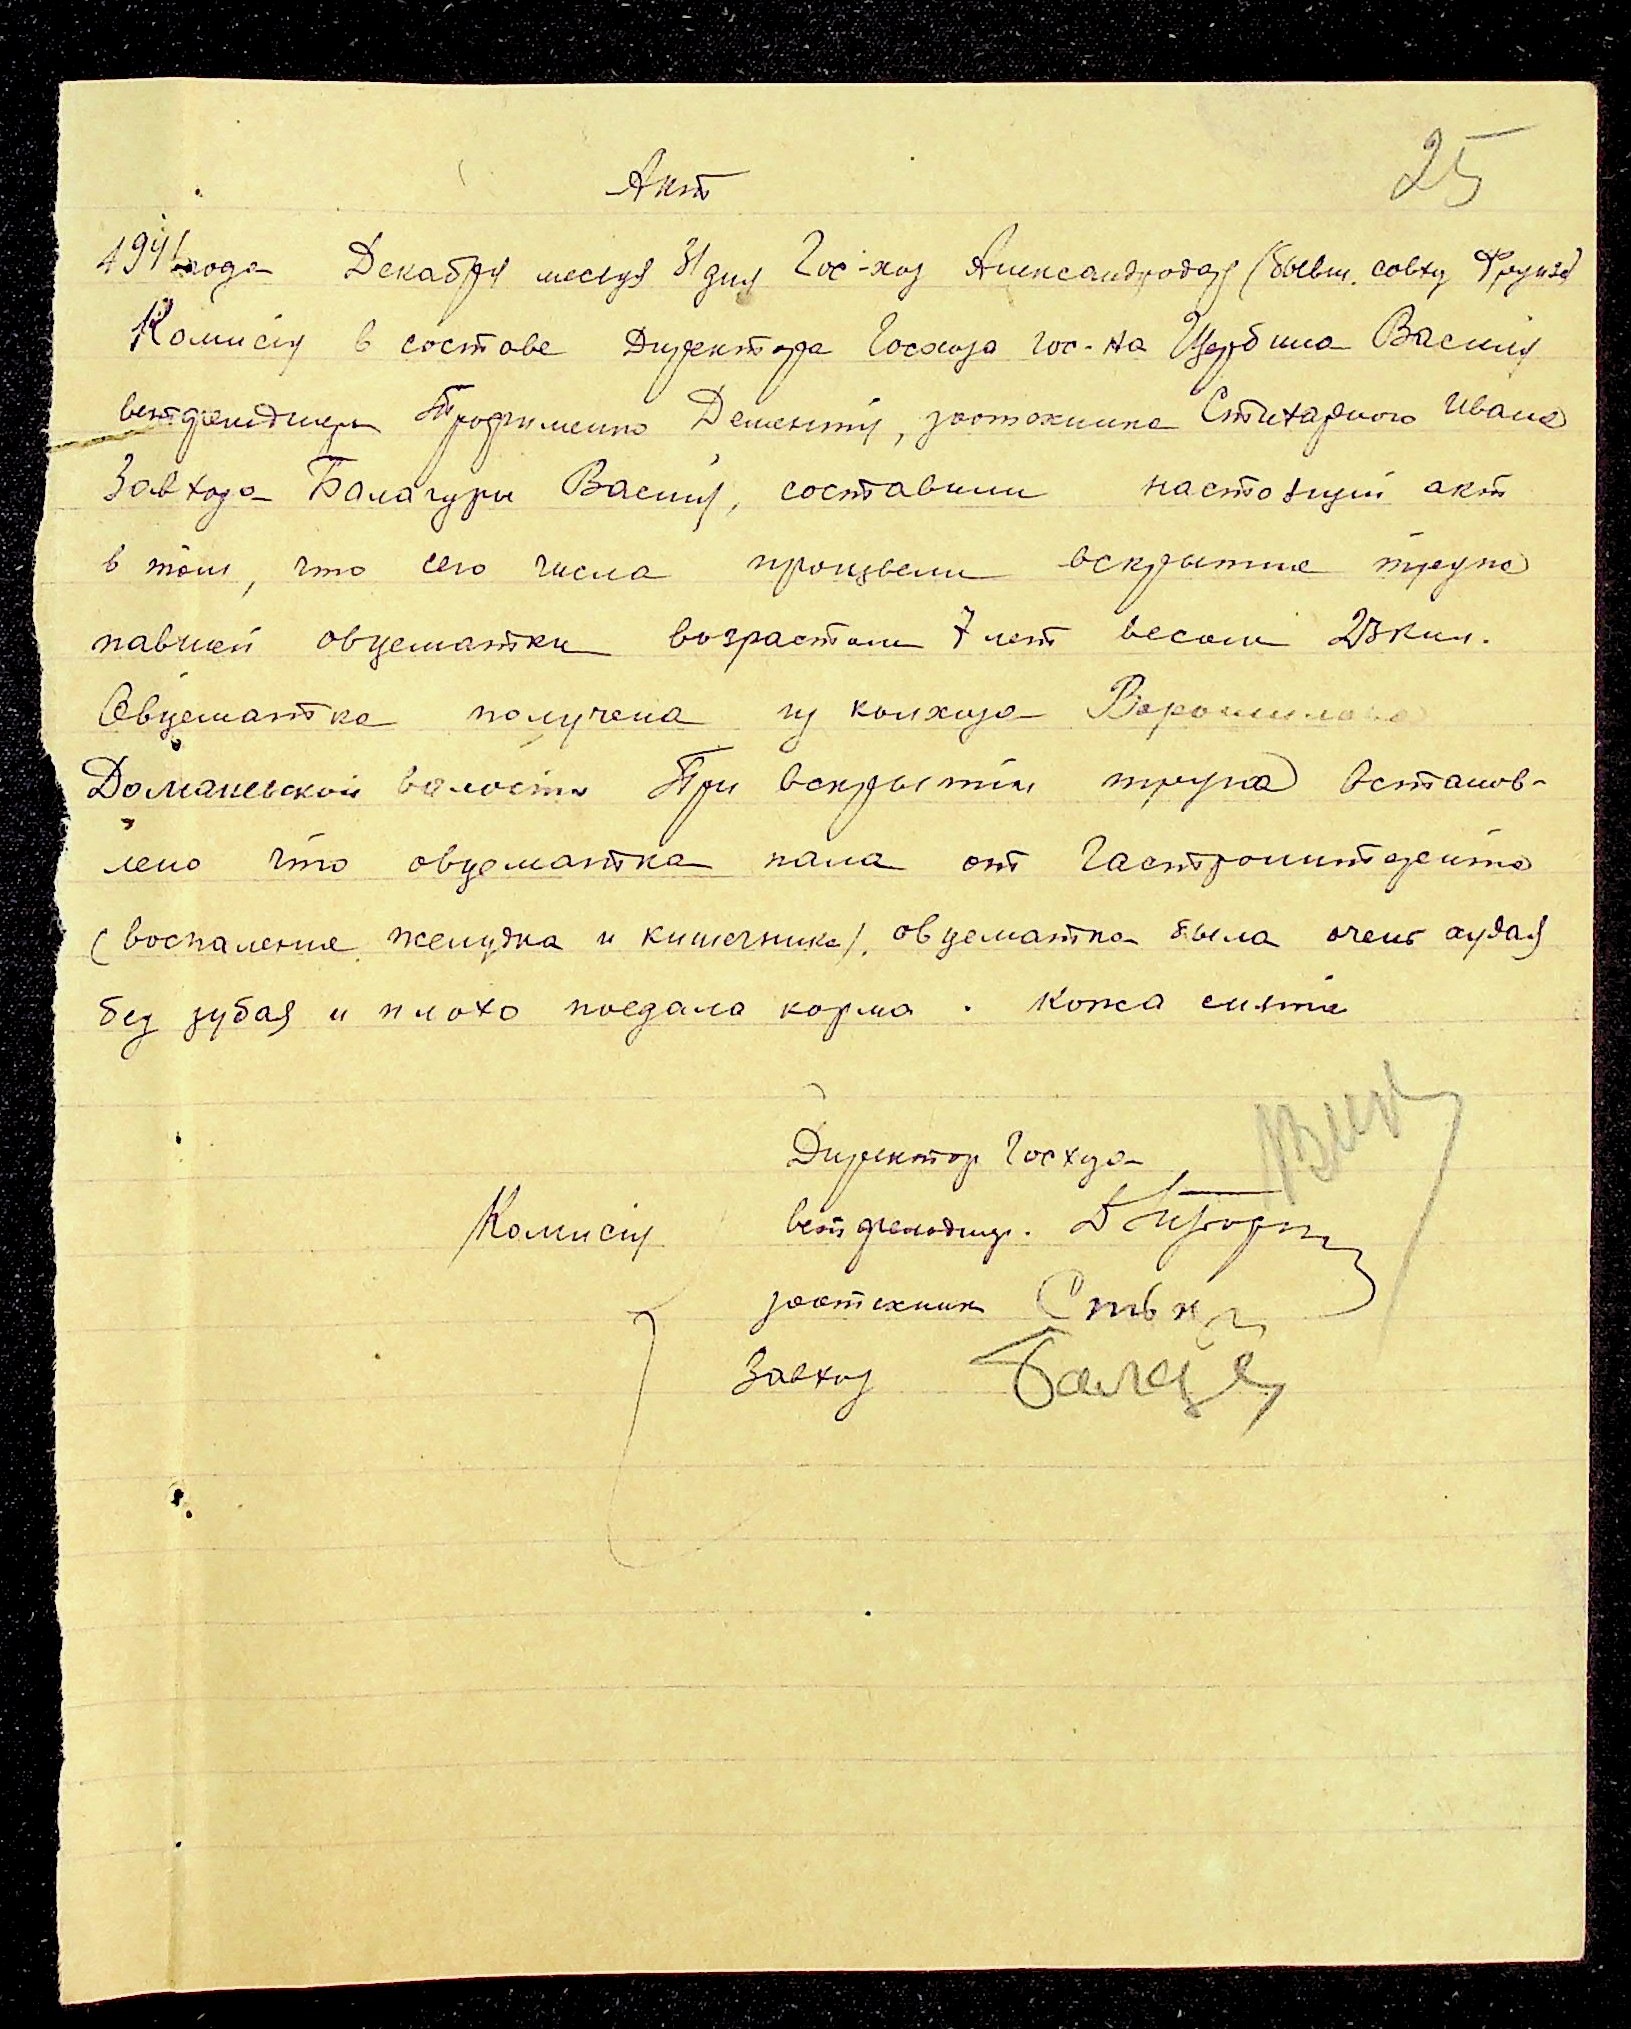 25
Акт
1941 года Декабря месяця 31 дня Гос-хоз Александродар (бывш. совхз Фрунзе)
Комисия в состове Директора Госхоза гос-на Щербина Василия
ветфельдшера Трофименко Дементия, зоотехника Стихарного Ивана
Завхоза Балагуры Василия, составили настоящий акт
в том, что сего числа произвели вскрытие трупа
павшей овцематки возрастом 7 лет весом 23 кил.
Овцематка получена из колхоза Ворошилова
Доманевской волости При вскрытии трупа встанов-
лено что овцематка пала от Гастроинтереита
(воспаление желудка и кишечника). овцематка была очень худая
без зубая и плохо поедала корма. Кожа снята
Директор Госхоза
Комисия ветфельдшер.
зоотехник
Завхоз